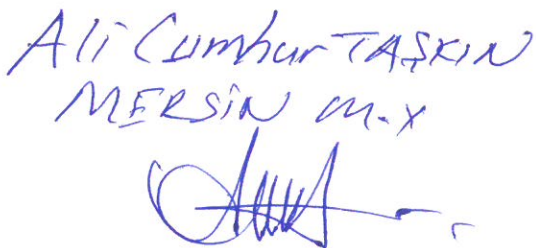 Ali Cumhur TAŞKIN
MERSİN M.V